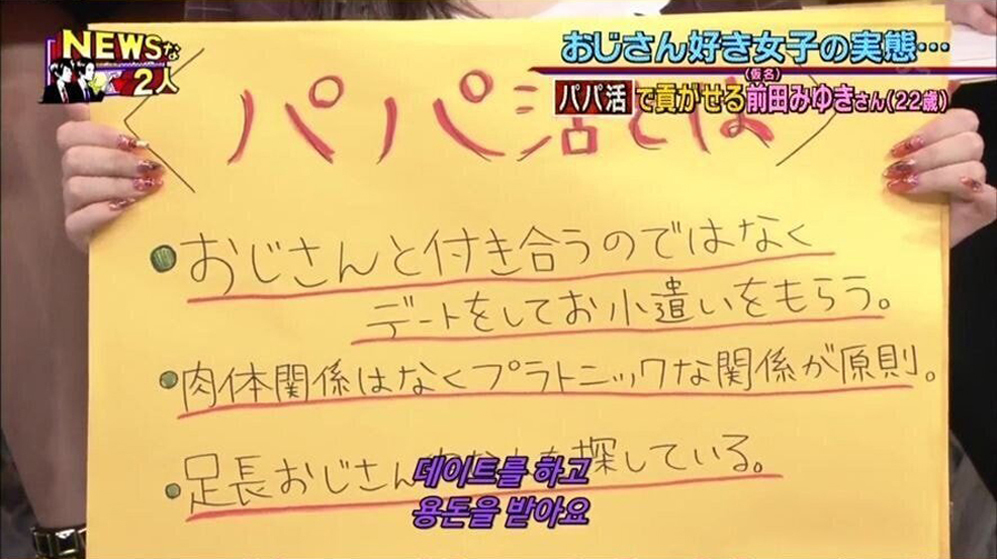 NEWSな
2人
おじさん好き女子の実態…
(仮名)
パパ活で貢がせる前田みゆきさん(22歳)
パパ活とは
・おじさんと付き合うのではなく
デートをしてお小遣いをもらう。
・肉体関係はなくプラトニックな関係が原則。
・足長おじさん 探している。
데이트를 하고
용돈을 받아요